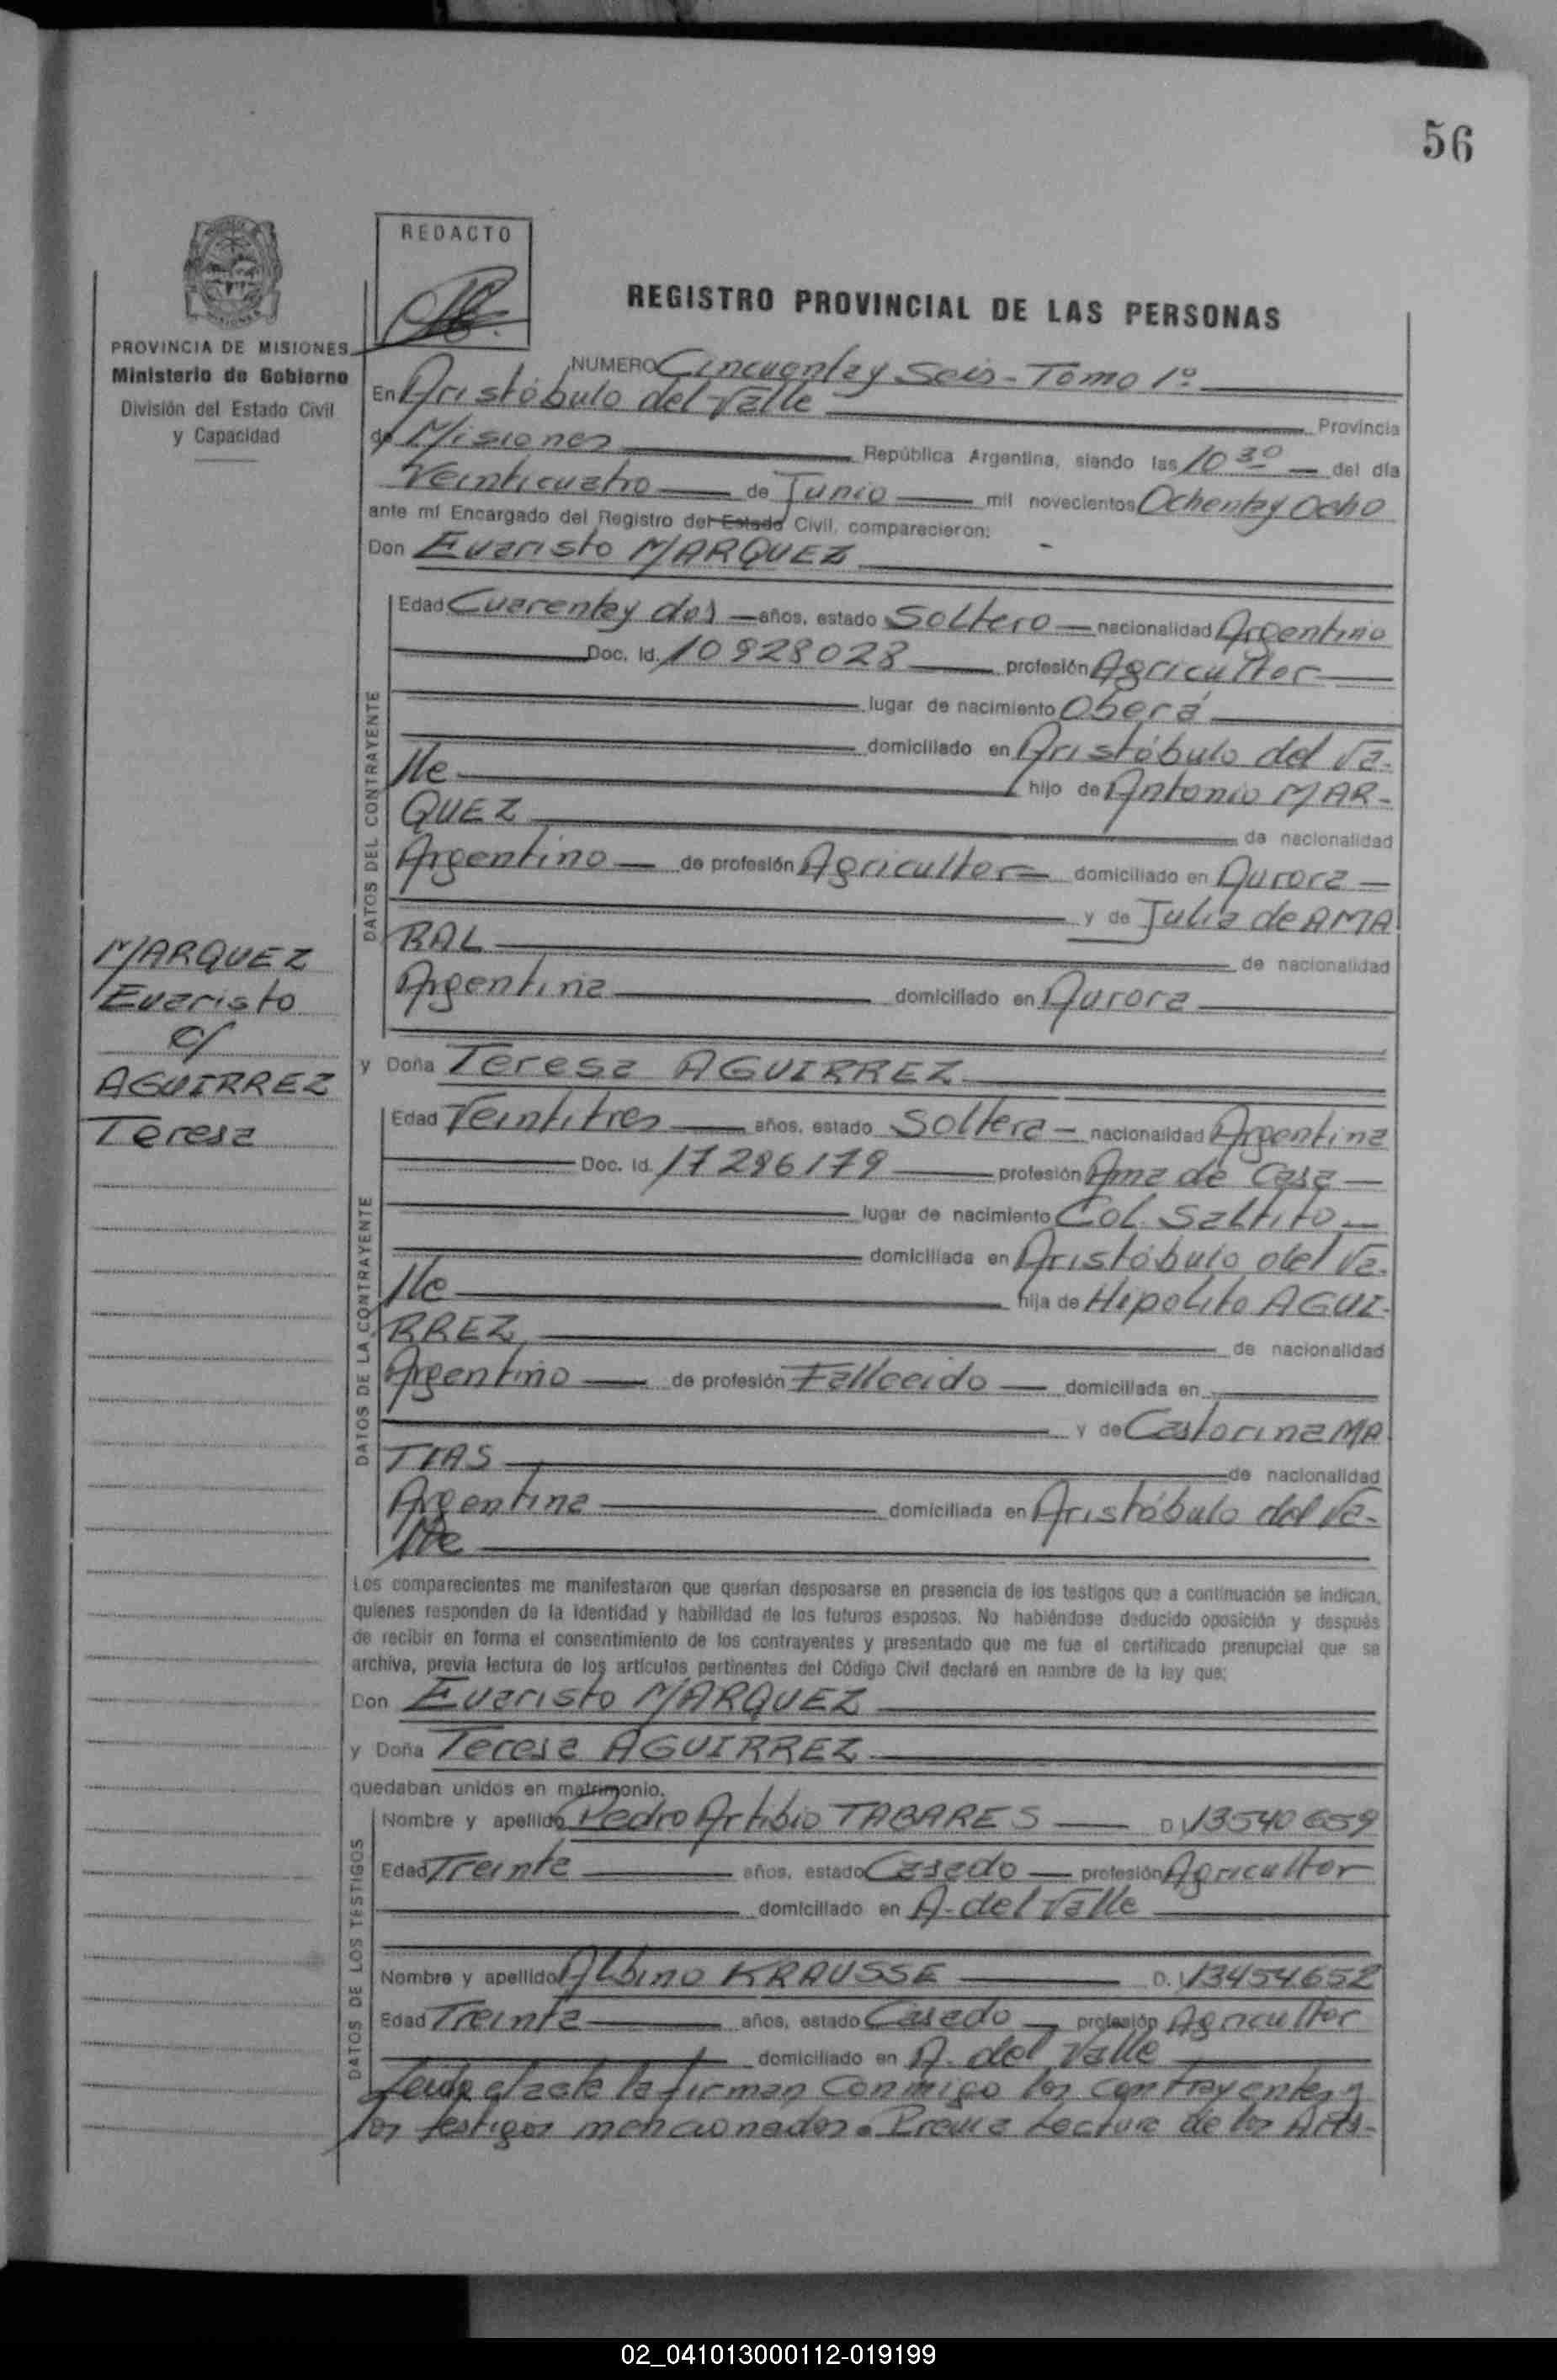 56
REDACTO
REGISTRO PROVINCIAL DE LAS PERSONAS
PROVINCIA DE MISIONES
Ministerio de Gobierno
División del Estado Civil
y Capacidad
NUMERO Cincuenta y Seis - Tomo 1º
En Aristóbulo del Valle Provincia
de Misiones República Argentina, siendo las 10 30 del día
Veinticuatro de Junio mil novecientos Ochenta y Ocho
ante mí Encargado del Registro del Estado Civil, comparecieron:
Don Evaristo MARQUEZ
DATOS DEL CONTRAYENTE
Edad Cuarenta y dos años, estado Soltero nacionalidad Argentino
Doc. Id. 10928028 profesión Agricultor
lugar de nacimiento Oberá
domiciliado en Aristóbulo del Va-
lle hijo de Antonio MAR-
QUEZ de nacionalidad
Argentino de profesión Agricultor domiciliado en Aurora
y de Julia de AMA
RAL de nacionalidad
Argentina domiciliado en Aurora
MARQUEZ
Evaristo
c/
AGUIRREZ
Teresa
y Doña Teresa AGUIRREZ
DATOS DE LA CONTRAYENTE
Edad Veintitres años, estado Soltera nacionalidad Argentina
Doc. Id. 17286179 profesión Ama de Casa
lugar de nacimiento Col. Saltito
domiciliada en Aristóbulo del Va-
lle hija de Hipolito AGUI-
RREZ de nacionalidad
Argentino de profesión Fallecido domiciliada en
y de Castorina MA
TIAS de nacionalidad
Argentina domiciliada en Aristóbulo del Va-
lle
Los comparecientes me manifestaron que querían desposarse en presencia de los testigos que a continuación se indican,
quienes responden de la identidad y habilidad de los futuros esposos. No habiéndose deducido oposición y después
de recibir en forma el consentimiento de los contrayentes y presentado que me fue el certificado prenupcial que se
archiva, previa lectura de los artículos pertinentes del Código Civil declaré en nombre de la ley que:
Don Evaristo MARQUEZ
y Doña Teresa AGUIRREZ
quedaban unidos en matrimonio.
DATOS DE LOS TESTIGOS
Nombre y apellido Pedro Artibio TABARES D.I. 13540659
Edad Treinta años, estado Casado profesión Agricultor
domiciliado en A. del Valle
Nombre y apellido Albino KRAUSSE D.I. 13454652
Edad Treinta años, estado Casado profesión Agricultor
domiciliado en A. del Valle
Leída el acta la firman conmigo los contrayentes y
los testigos mencionados. Previa Lectura de los Arts-
02_041013000112-019199